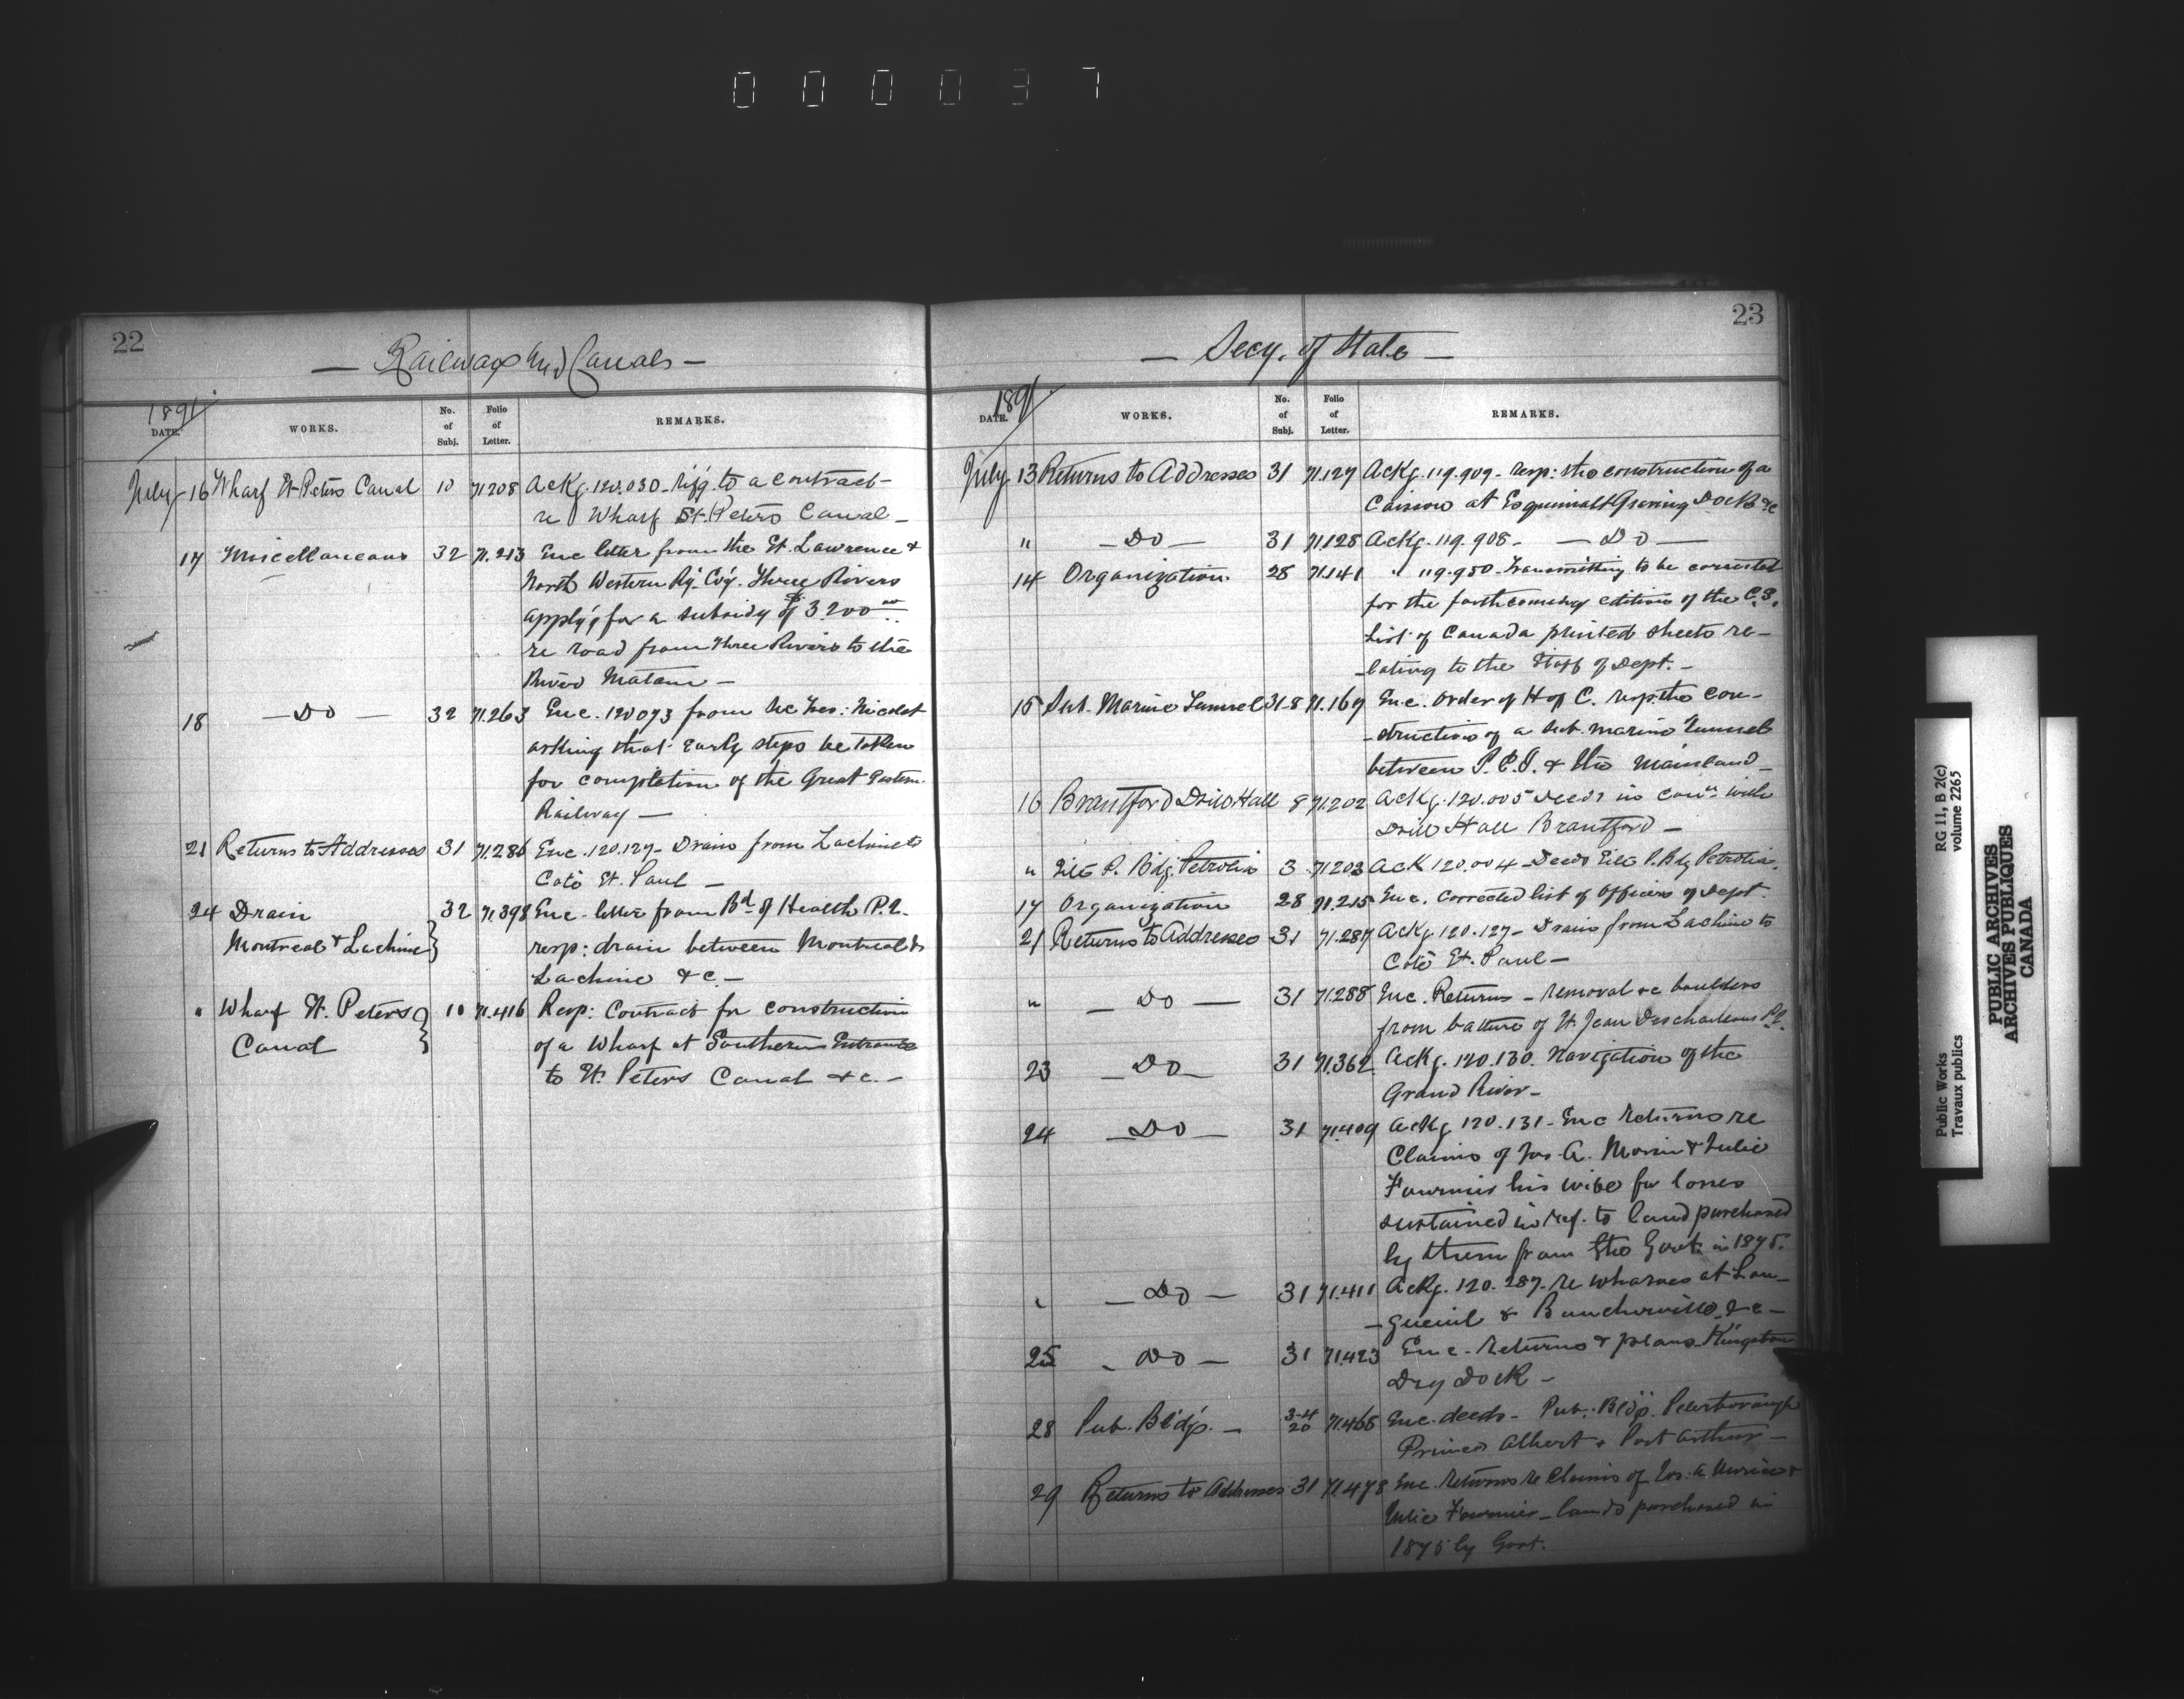 000037
22
— Railways and Canals —
1891
DATE. WORKS. No. of Subj. Folio of Letter. REMARKS.
July 16 Wharf St Peters Canal 10 71208 Ackg. 120.030 - r'f'g to a contract -
re Wharf St. Peters Canal -
17 Miscellaneous 32 71.213 Enc letter from the St. Lawrence &
North Western Ry. Coy. Three Rivers
apply'g for a subsidy of $3200.00
re road from Three Rivers to the
River Matane -
18 — Do — 32 71.263 Enc. 120073 from Sec Tres: Nicolet
asking that early steps be taken
for completion of the Great Eastern
Railway —
21 Returns to Addresses 31 71.286 Enc. 120.127 - Drain from Lachine to
Coté St. Paul —
24 Drain 32 71.398 Enc. letter from Bd. of Health P.Q.
Montreal & Lachine } resp: drain between Montreal &
Lachine &c. -
" Wharf St. Peters } 10 71.416 Resp: Contract for construction
Canal of a Wharf at Southern Entrance
to St. Peters Canal &c. -
23
— Secy. of State —
1891
DATE. WORKS. No. of Subj. Folio of Letter. REMARKS.
July 13 Returns to Addresses 31 71.127 Ackg. 119.909 - resp: the construction of a
Caisson at Esquimalt Graving Dock &c
" — Do — 31 71128 Ackg. 119.908 - — Do —
14 Organization 28 71141 " 119.950 - Transmitting to be corrected
for the forthcoming edition of the C.S.
List of Canada printed sheets re-
-lating to the Staff of Dept. -
15 Sub. Marine Tunnel 31-8 71.167 Enc. Order of H of C. resp. the con-
-struction of a sub. marine Tunnel
between P.E.I. & the Mainland -
16 Brantford Drill Hall 8 71.202 Ackg. 120.005 Deeds in conn. with
Drill Hall Brantford —
" P. Bdg. Petrolia 3 71203 Ack 120.004 - Deeds P. Bdg Petrolia.
17 Organization 28 71.215 Enc. Corrected list of Officers of Dept
21 Returns to Addresses 31 71.287 Ackg. 120.127 - Drain from Lachine to
Coté St. Paul —
" — Do — 31 71.288 Enc. Returns - removal &c boulders
from batture of St. Jean Deschaillons P.Q.
23 — Do — 31 71.362 Ackg. 120.130. Navigation of the
Grand River -
24 — Do — 31 71.409 Ackg. 120.131 - Enc Returns re
Claims of Jos. A. Morin & Julie
Fournier his wife for losses
sustained in ref. to land purchased
by them from the Govt. in 1875.
" — Do — 31 71.411 Ackg. 120.287 - re wharves at Lon-
-gueuil & Boucherville &c -
25 — Do — 31 71.423 Enc - Returns & plans Kingston
Dry Dock -
28 Pub. Bld'gs. — 3-4 20 71.465 Enc. deeds - Pub. Bldgs. Peterborough
Prince Albert & Port Arthur —
29 Returns to Addresses 31 71.478 Enc. Returns re Claims of Jos. A. Morin &
Julie Fournier - lands purchased in
1875 by Govt.
Public Works RG 11, B 2(c)
Travaux publics volume 2265
PUBLIC ARCHIVES
ARCHIVES PUBLIQUES
CANADA